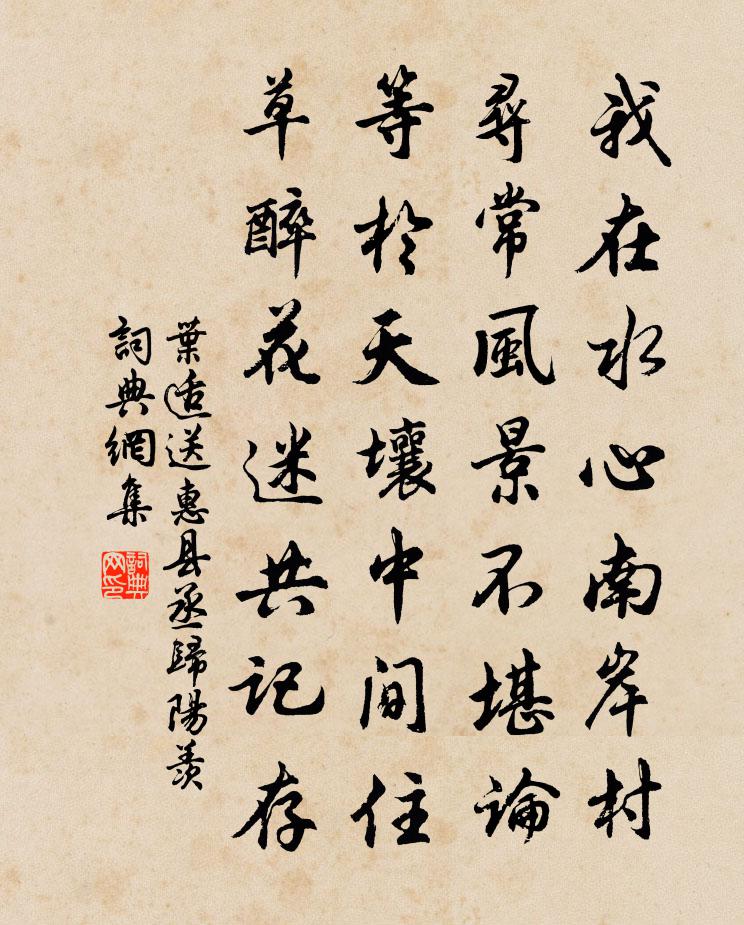 我在水心南岸村
尋常風景不堪論
等於天壤中間住
草醉花迷共記存
葉適送惠县丞歸陽羨
詞典網集
詞典網印